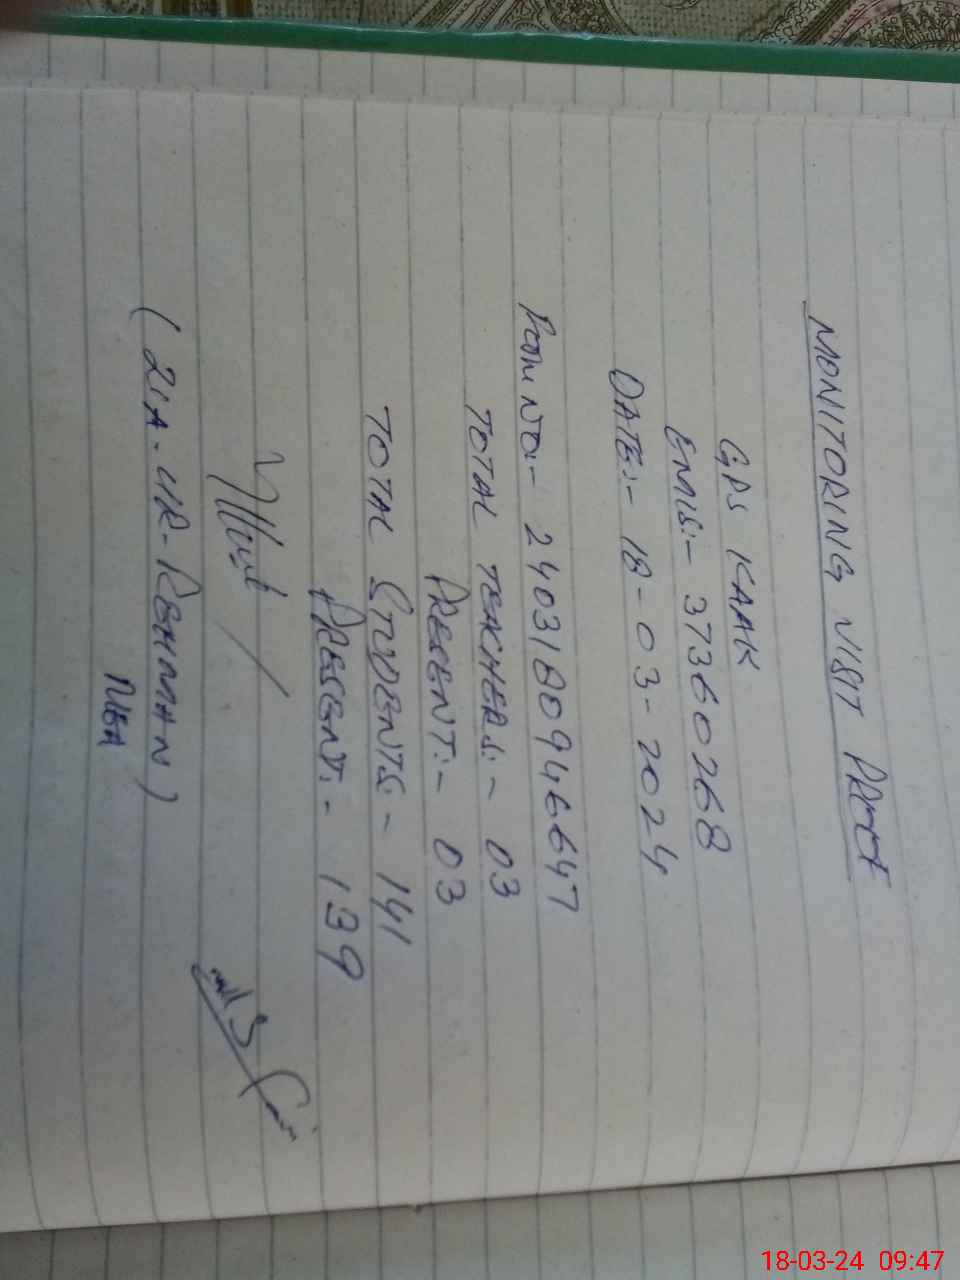 MONITORING VISIT PROOF
GPS KAAK
EMIS:- 37360268
DATE:- 18-03-2024
TOTAL TEACHERS:- 03
PRESENT:- 03
TOTAL STUDENTS:- 141
PRESENT:- 139
(ZIA-UR-REHMAN)
18-03-24 09:47